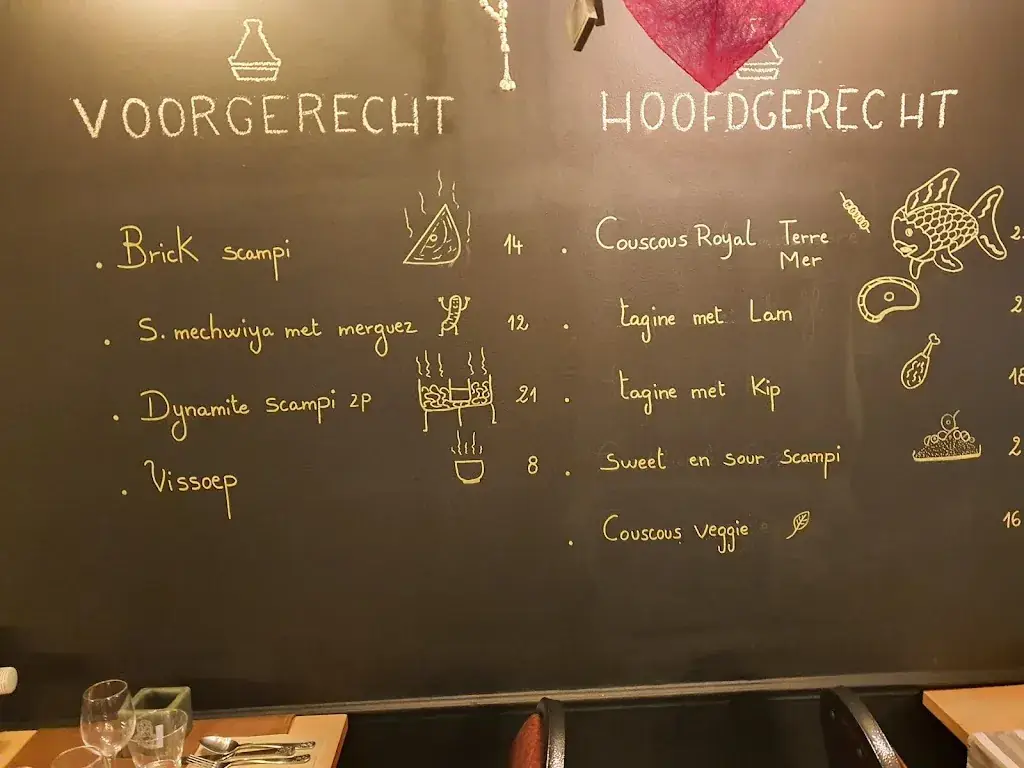 VOORGERECHT
Brick scampi 14
S. mechwiya met merguez 12
Dynamite scampi 2P 21
Vissoep 8
HOOFDGERECHT
Couscous Royal Terre
Mer
tagine met Lam
tagine met Kip 18
Sweet en sour scampi
Couscous veggie 16